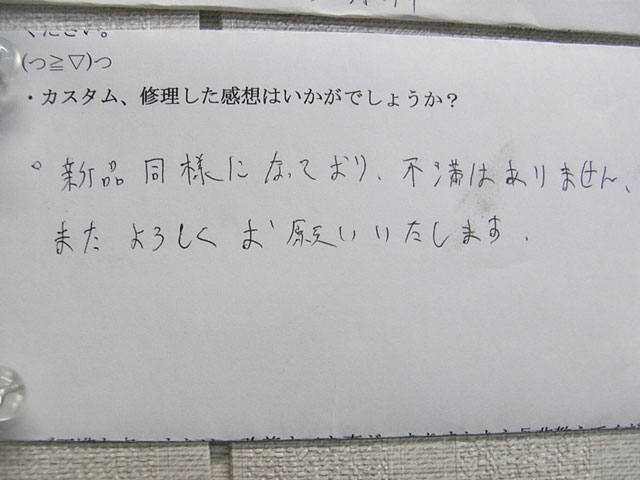 ください。
(つ≧▽)つ
・カスタム、修理した感想はいかがでしょうか？
。新品同様になっており、不満はありません、
またよろしくお願いいたします．